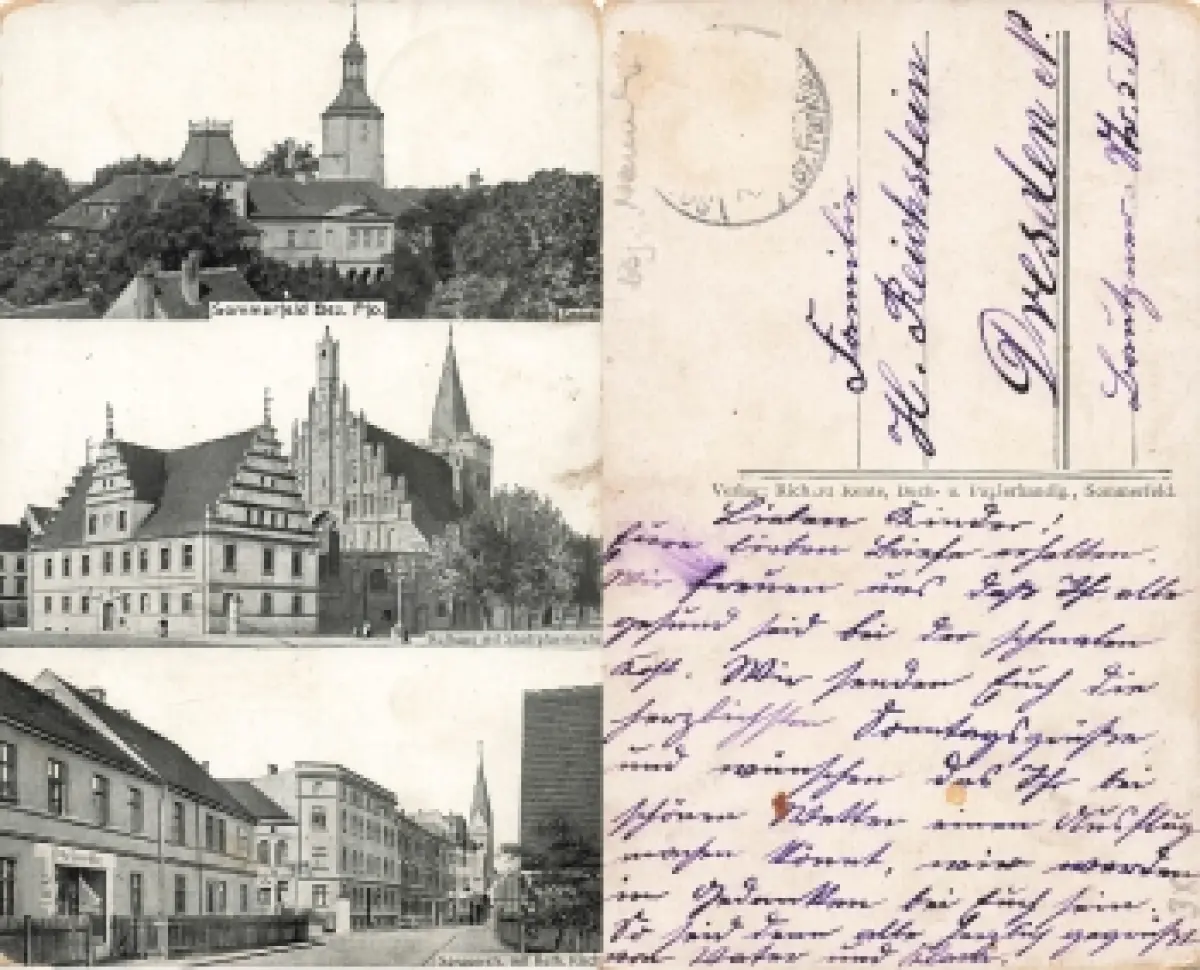 Sommerfeld Bez. Ffo.
Rathaus mit Stadtpfarrkirche
mit Kath. Kirche
Familie
H. Reichstein
Dresden N.
Bautzner Str. 5 IV
Verlag: Richard Rente, Buch- u. Papierhandlg., Sommerfeld.
Lieben Kinder!
Eure lieben Briefe erhalten.
Wir freuen uns daß Ihr alle
gesund seid bei der schmalen
Kost. Wir senden Euch die
herzlichsten Sonntagsgrüße
und wünschen das Ihr bei
schönen Wetter einen Ausflug
machen könnt, wir werden
in Gedanken bei Euch sein.
So seid denn alle herzlich gegrüßt
von Vater und